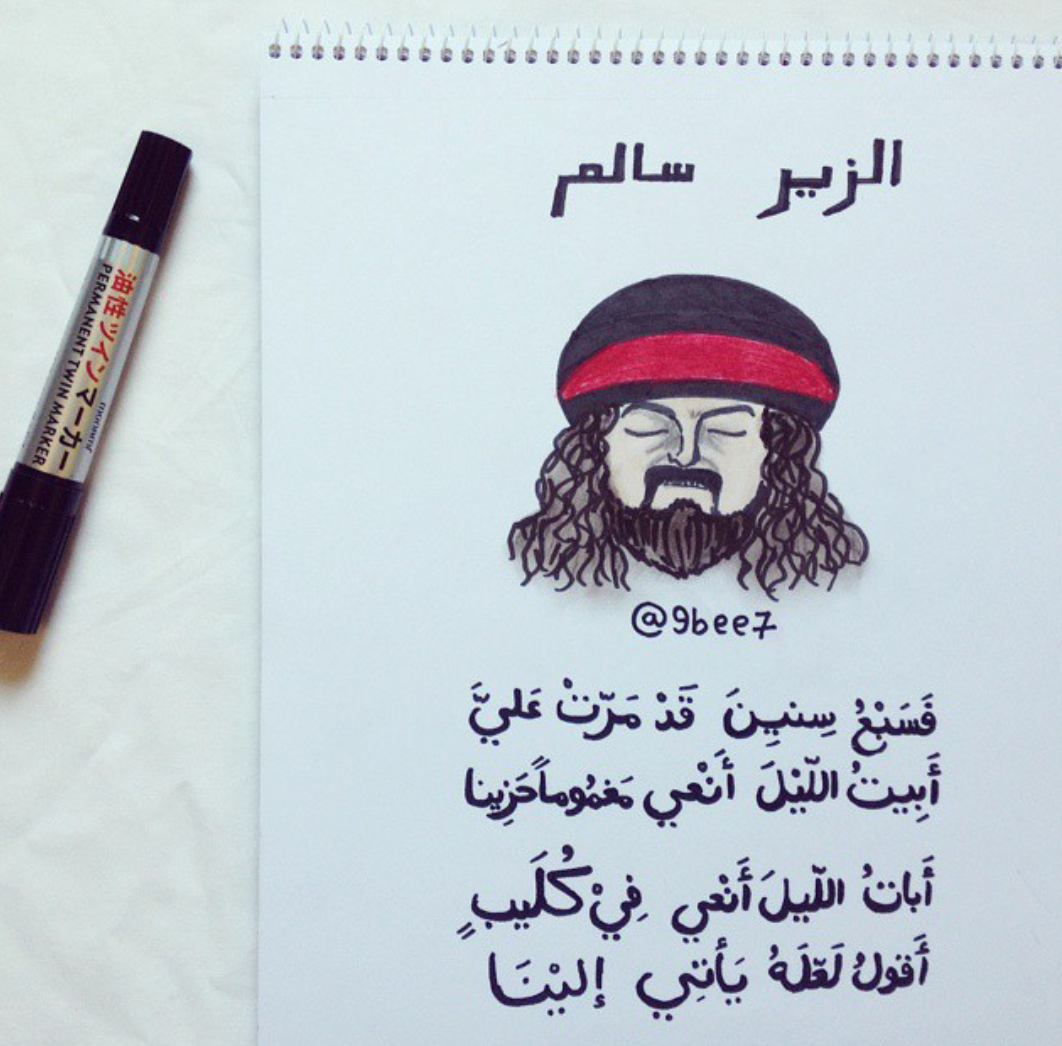 الزير سالم
@9bee7
فَسَبْعُ سِنيِنَ قَدْ مَرّتْ عَليَّ
أَبِيتُ اللّيْلَ أَنْعي مَغمُوماً حَزِينا
أَباتُ اللّيلَ أَنْعي فِيْ كُلَيبٍ
أَقولُ لَعَلّهُ يَأتِي إليْنَا
油性ツインマーカー
PERMANENT TWIN MARKER